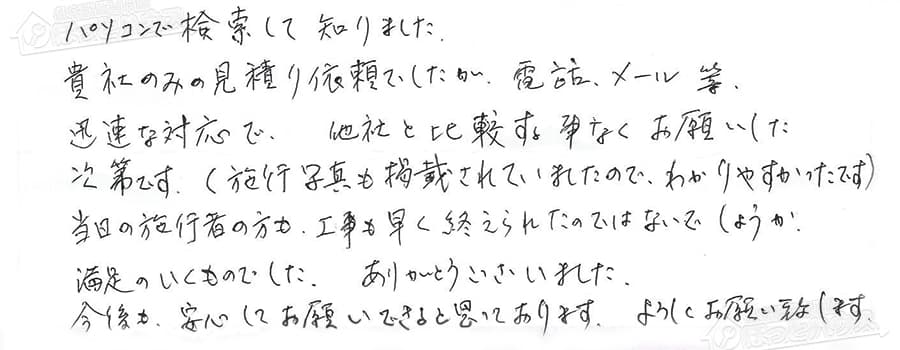 パソコンで検索して知りました.
貴社のみの見積り依頼でしたが、電話、メール 等、
迅速な対応で、 他社と比較する事なくお願いした
次第です.(施行写真も掲載されていましたので、わかりやすかったです)
当日の施行者の方も、工事も早く終えられたのではないでしょうか.
満足のいくものでした. ありがとうございました.
今後も、安心してお願いできると思っております. よろしくお願い致します.